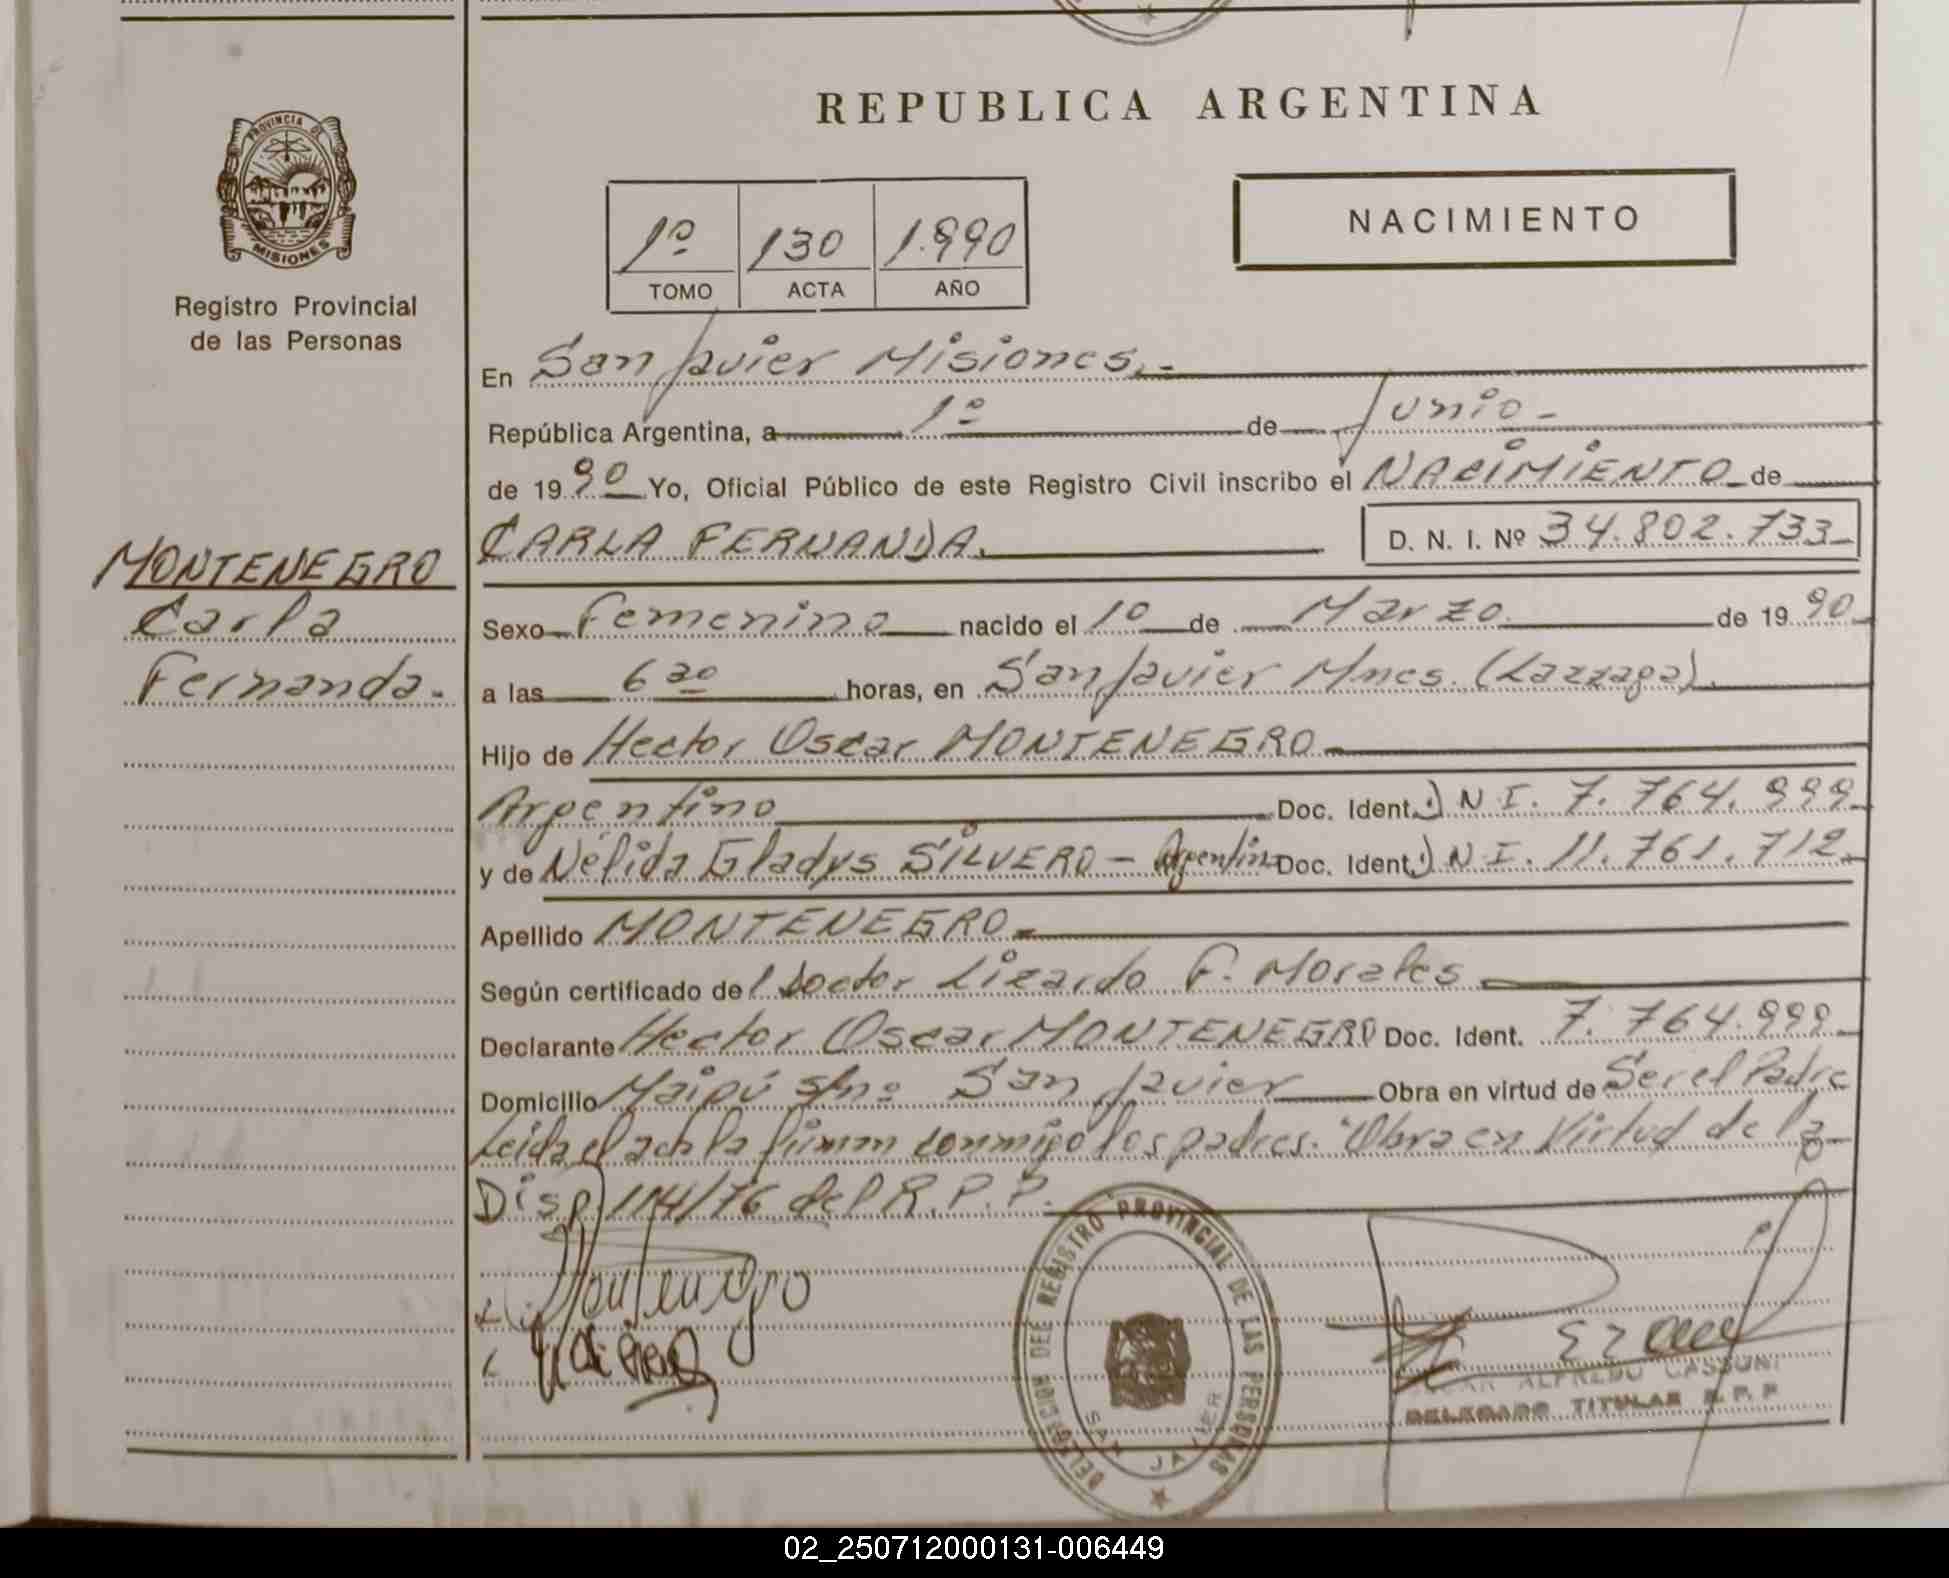 REPUBLICA ARGENTINA
PROVINCIA DE
MISIONES
Registro Provincial
de las Personas
1º 130 1.990
TOMO ACTA AÑO
NACIMIENTO
En San Javier Misiones.-
República Argentina, a 1º de Junio -
de 1990 Yo, Oficial Público de este Registro Civil inscribo el NACIMIENTO de
CARLA FERNANDA. D. N. I. Nº 34.802.733
MONTENEGRO
Carla
Fernanda.
Sexo Femenino nacido el 1º de Marzo de 1990
a las 6 30 horas, en San Javier Mnes.
Hijo de Hector Oscar MONTENEGRO
Argentino Doc. Ident. D N I. 7. 764. 999
y de Nélida Gladys SILVERO - Argentina Doc. Ident. D N I. 11. 761. 712
Apellido MONTENEGRO
Según certificado del Doctor Lizardo F. Morales
Declarante Hector Oscar MONTENEGRO Doc. Ident. 7. 764.999
Domicilio Maipú s/nº San Javier Obra en virtud de Ser el Padre
Leída el acta la firman conmigo los padres. Obra en Virtud de la
Disp. 114/76 del R.P.P.
Montenegro
DELEGACION DEL REGISTRO PROVINCIAL DE LAS PERSONAS
SAN JAVIER
OSCAR ALFREDO CASSONI
DELEGADO TITULAR R. P. P
02_250712000131-006449